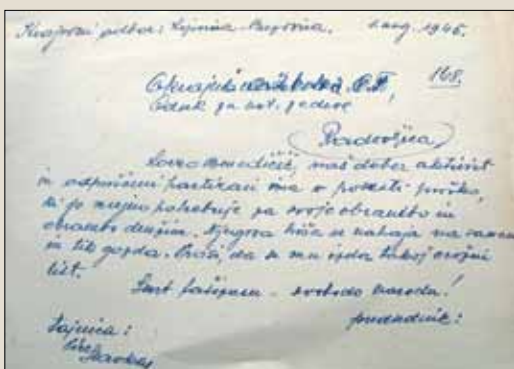 Krajevni odbor: Lipnica 1. aug. 1945.
168.
Odsek za not. zadeve
Radovljica
Lovro naš dober aktivist
in odpuščeni partizan ima v posesti puško,
ki jo nujno potrebuje za svojo obrambo in
obrambo družine. Njegova hiša se nahaja na samem
in tik gozda. Prosi, da se mu izda takoj orožni
list.
Smrt fašizmu – svobodo narodu!
Tajnica: predsednik: